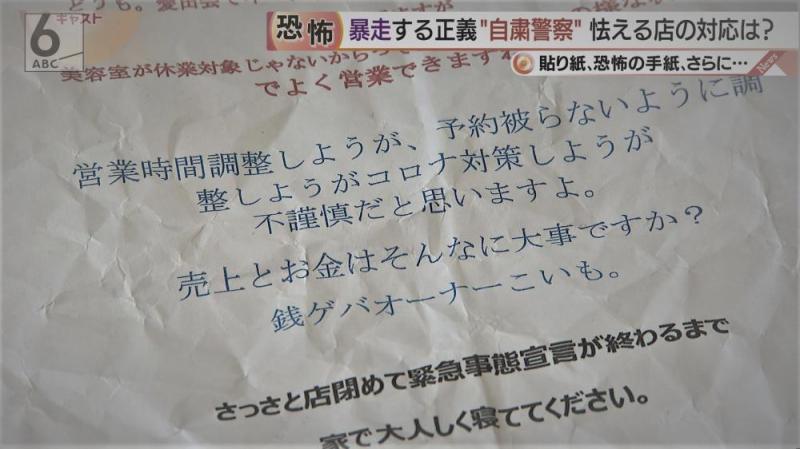 キャスト
6
ABC
恐怖 暴走する正義"自粛警察" 怯える店の対応は?
貼り紙、恐怖の手紙、さらに…
News
どうも。愛田会で
美容室が休業対象じゃないからって
でよく営業できます
営業時間調整しようが、予約被らないように調
整しようがコロナ対策しようが
不謹慎だと思いますよ。
売上とお金はそんなに大事ですか?
銭ゲバオーナーこいも。
さっさと店閉めて緊急事態宣言が終わるまで
家で大人しく寝ててください。